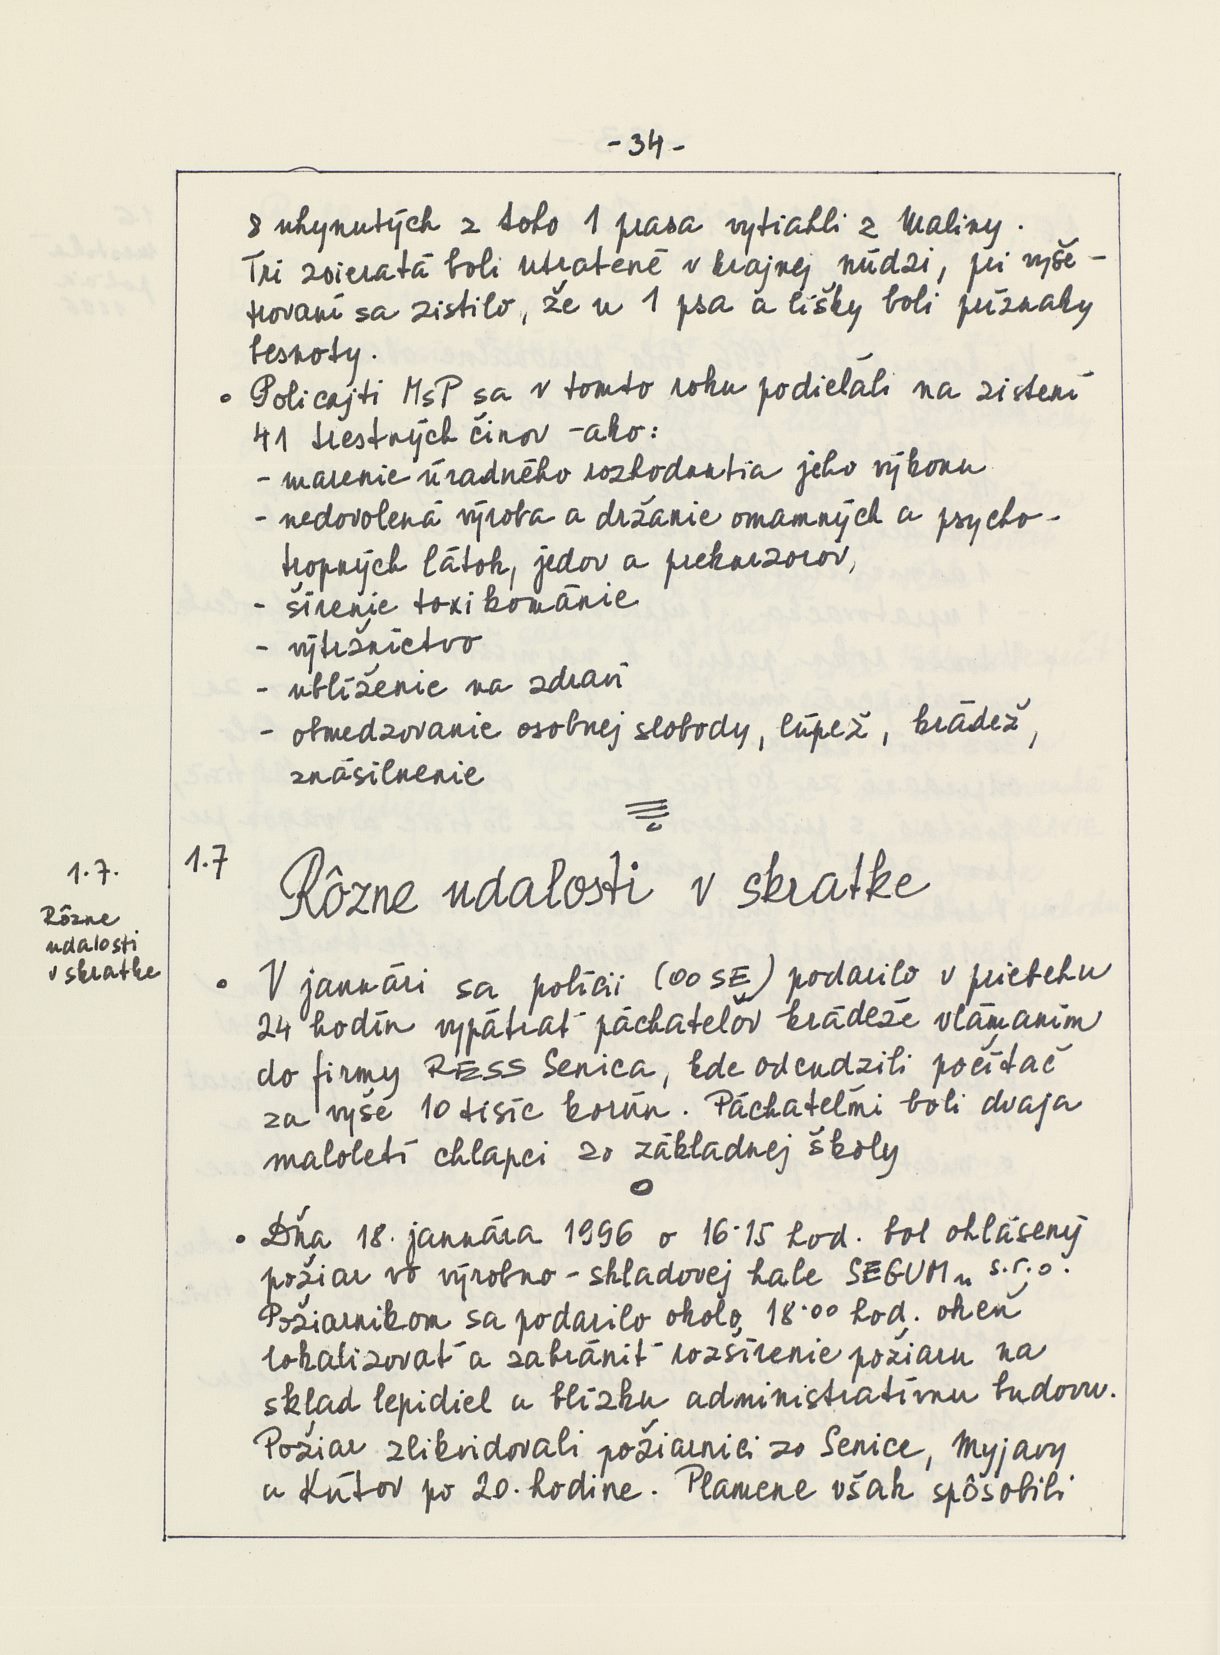 - 34 -
8 uhynutých z toho 1 prasa vytiahli z Maliny.
Tri zvieratá boli utratené v krajnej núdzi, pri vyše-
trovaní sa zistilo, že u 1 psa a líšky boli príznaky
besnoty.
• Policajti MsP sa v tomto roku podieľali na zistení
41 trestných činov - ako:
- marenie úradného rozhodnutia jeho výkonu
- nedovolená výroba a držanie omamných a psycho-
tropných látok, jedov a prekurzorov,
- šírenie toxikománie
- výtržníctvo
- ublíženie na zdraví
- obmedzovanie osobnej slobody, lúpež, krádež,
znásilnenie
1.7.
Rôzne
udalosti
v skratke
1.7 Rôzne udalosti v skratke
• V januári sa polícii (OO SE) podarilo v priebehu
24 hodín vypátrať páchateľov krádeže vlámaním
do firmy RESS Senica, kde odcudzili počítač
za vyše 10 tisíc korún. Páchateľmi boli dvaja
maloletí chlapci zo základnej školy
• Dňa 18. januára 1996 o 16.15 hod. bol ohlásený
požiar vo výrobno - skladovej hale SEGUM, s.r.o.
Požiarnikom sa podarilo okolo 18.00 hod. oheň
lokalizovať a zabrániť rozšírenie požiaru na
sklad lepidiel a blízku administratívnu budovu.
Požiar zlikvidovali požiarnici zo Senice, Myjavy
a Kútov po 20. hodine. Plamene však spôsobili